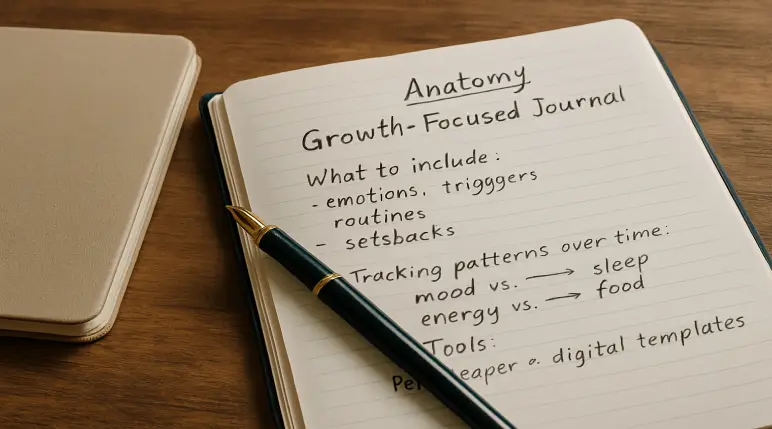 Anatomy
Growth-Focused Journal
What to include:
- emotions, trigggers
routines
- setsbacks
Tracking patterns over time:
mood vs. → sleep
energy vs. → food
Tools:
digital templates